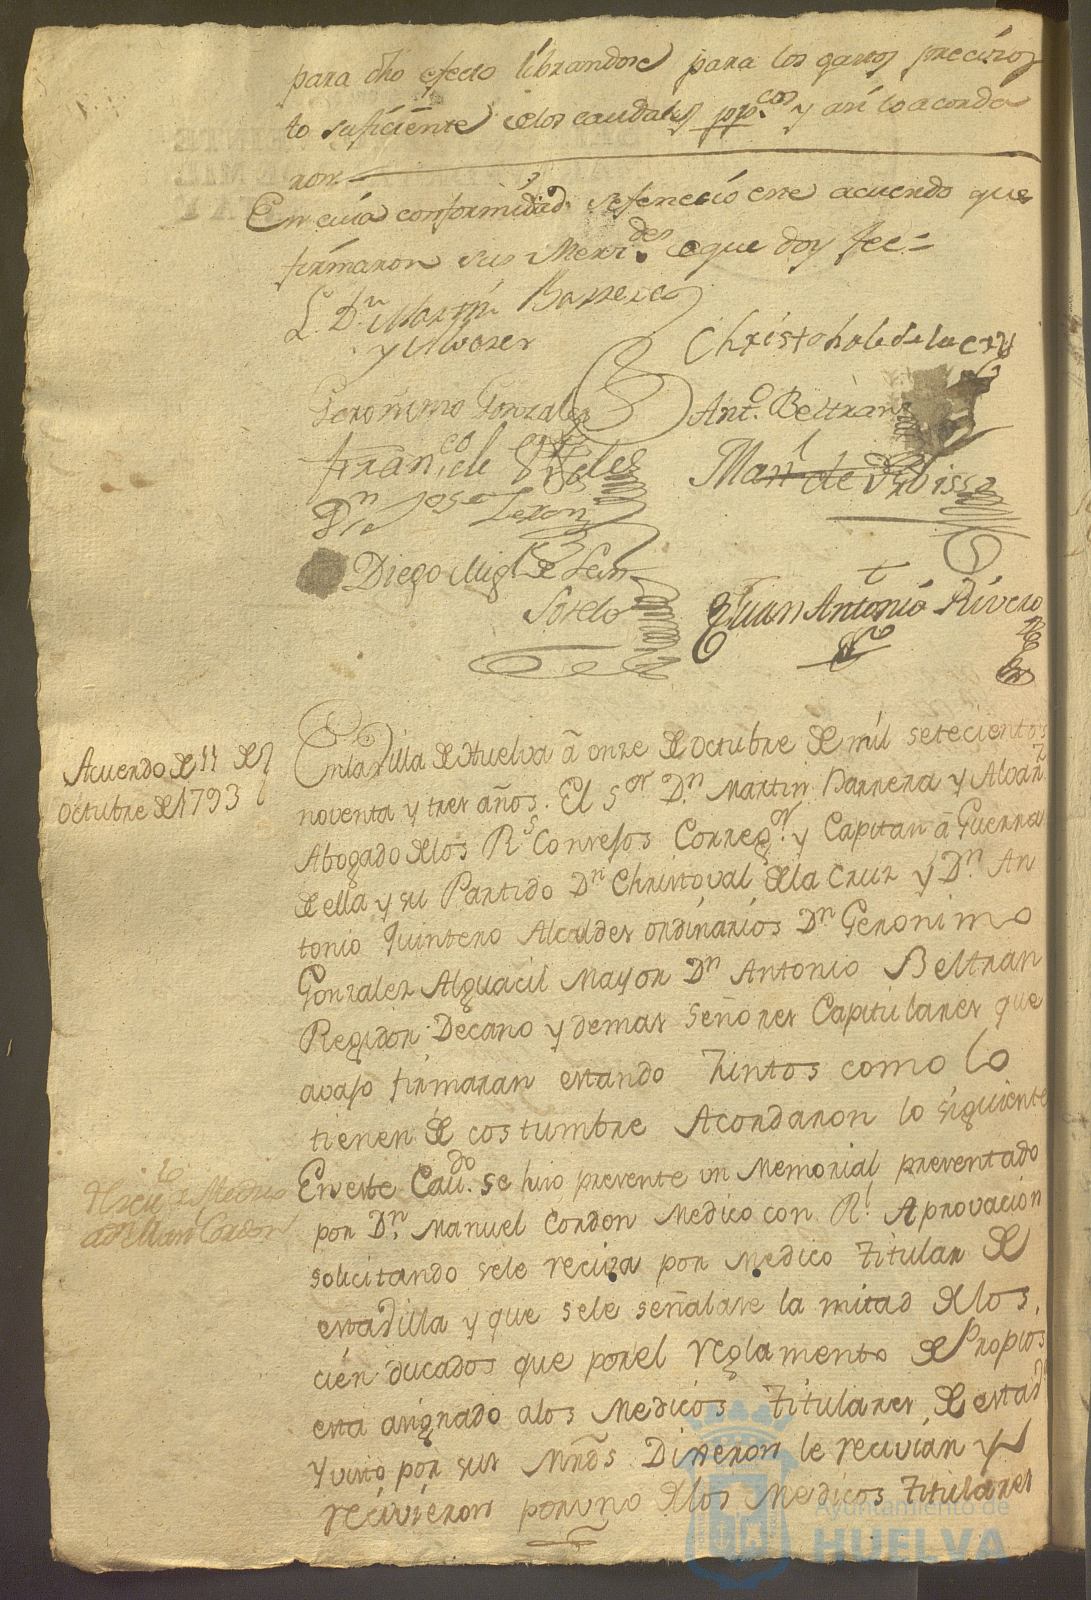 para dho efecto librandose para los gastos precisos
lo suficiente de los caudales ppcos y asi lo acorda
ron.
En cuia conformidad se feneció este acuerdo que
firmaron sus Merzdes de que doy fee =
L. Dn Martin Barrera
y Alvarez
Christobal de la Cruz
Geronimo Gonzalez
Anto. Beltran
Franco de
Manl de
Dn Jose
Diego Migl de
Sotelo
Juan Antonio Rivero
Acuerdo de 11 de
Octubre de 1793
En la Villa de Huelva á onze de Octubre de mil setecientos
noventa y tres años. El Sor Dn Martin Barrera y Alvarz
Abogado de los Rs Consejos Corregor y Capitan á Guerra
de ella y su Partido Dn Christoval de la Cruz y Dn An
tonio Quintero Alcaldes ordinarios Dn Geronimo
Gonzalez Alguacil Mayor Dn Antonio Beltran
Regidor Decano y demas Señores Capitulares que
avajo firmaran estando Juntos como lo
tienen de costumbre Acordaron lo siguiente
En este Cavdo. se hizo presente un Memorial presentado
por Dn Manuel Cordon Medico con Rl Aprovacion
solicitando se le reciva por Medico Titular de
esta Villa y que se le señalase la mitad de los
cien ducados que por el reglamento de Propios
esta asignado a los Medicos Titulares de esta Va
Y visto por sus Mrds Dixeron le recivian y
recivieron por uno de los Medicos Titulares
de Medico
a Dn Man Cordon
Ayuntamiento de
HUELVA